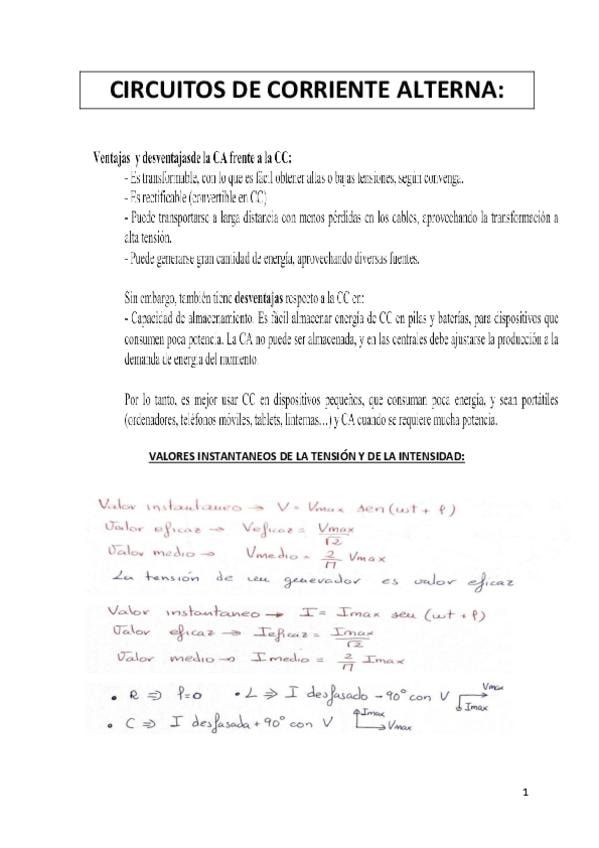 CIRCUITOS DE CORRIENTE ALTERNA:
Ventajas y desventajasde la CA frente a la CC:
- Es transformable, con lo que es fácil obtener altas o bajas tensiones, según convenga.
- Es rectificable (convertible en CC)
- Puede transportarse a larga distancia con menos pérdidas en los cables, aprovechando la transformación a
alta tensión.
- Puede generarse gran cantidad de energía, aprovechando diversas fuentes.
Sin embargo, también tiene desventajas respecto a la CC en:
- Capacidad de almacenamiento. Es fácil almacenar energía de CC en pilas y baterías, para dispositivos que
consumen poca potencia. La CA no puede ser almacenada, y en las centrales debe ajustarse la producción a la
demanda de energía del momento.
Por lo tanto, es mejor usar CC en dispositivos pequeños, que consuman poca energía, y sean portátiles
(ordenadores, teléfonos móviles, tablets, linternas…) y CA cuando se requiere mucha potencia.
VALORES INSTANTANEOS DE LA TENSIÓN Y DE LA INTENSIDAD:
Valor instantaneo → V = Vmax sen (wt + φ)
Valor eficaz → Veficaz = Vmax/√2
Valor medio → Vmedio = 2/π Vmax
La tensión de un generador es valor eficaz
Valor instantaneo → I = Imax sen (wt + φ)
Valor eficaz → Ieficaz = Imax/√2
Valor medio → Imedio = 2/π Imax
• R ⇒ φ=0 • L ⇒ I desfasado -90° con V Vmax Imax
• C ⇒ I desfasada + 90° con V Imax Vmax
1